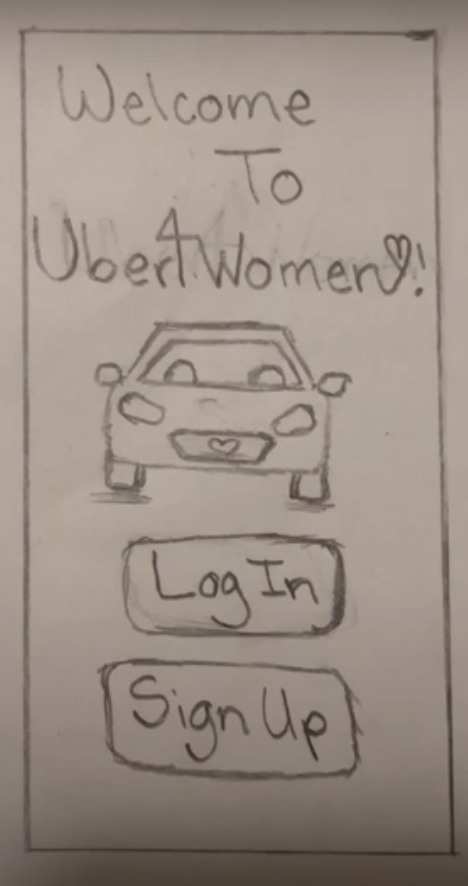 Welcome
To
Uber4Women♡!
Log In
Sign Up